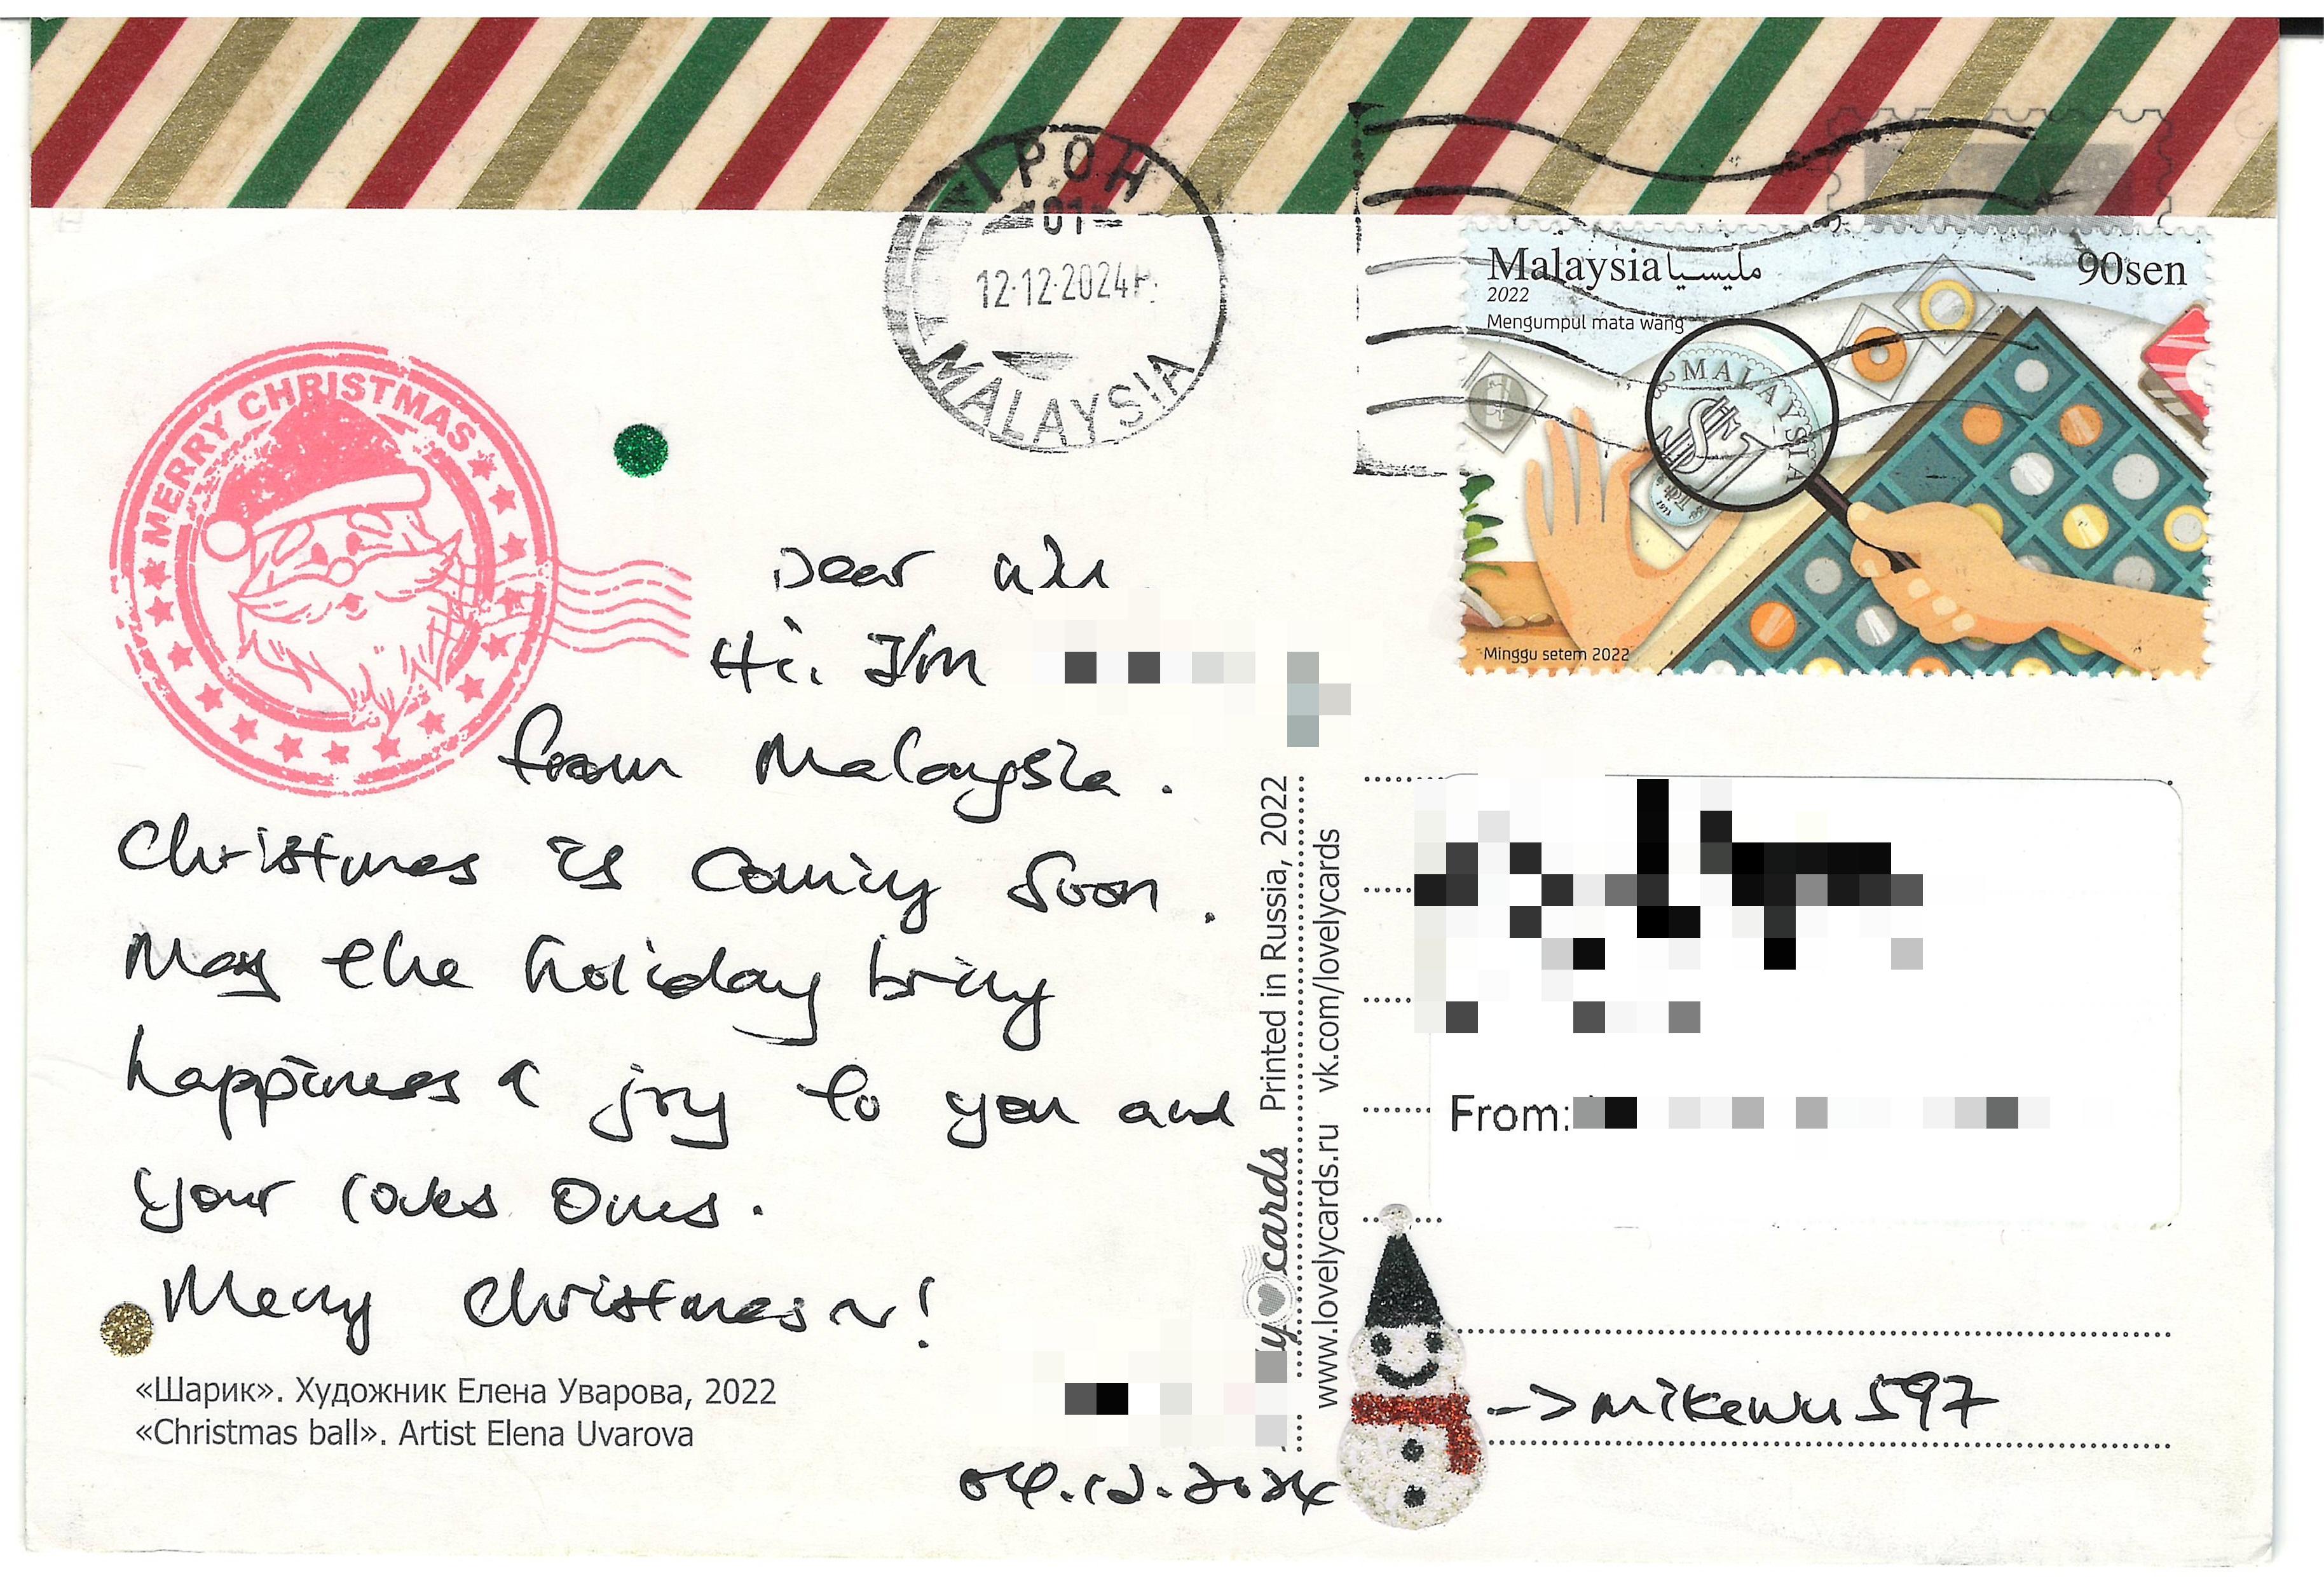 IPOH
01
12·12·2024
MALAYSIA
Malaysia مليسيا
90sen
2022
Mengumpul mata wang
MALAYSIA
Minggu setem 2022
MERRY CHRISTMAS
Dear
Hi. I'm
from Malaysia.
Christmas is coming soon.
May the holiday bring
happiness & joy to you and
your loves ones.
Merry Christmas~!
«Шарик». Художник Елена Уварова, 2022
«Christmas ball». Artist Elena Uvarova
04.12.2024
cards Printed in Russia, 2022
www.lovelycards.ru vk.com/lovelycards
From:
->mikewu597